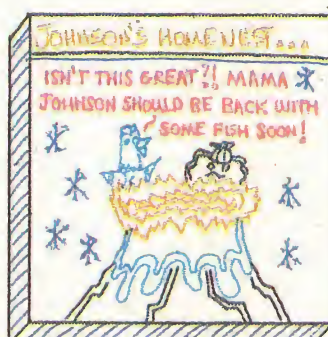 JOHNSON'S HOME NEST...
ISN'T THIS GREAT?! MAMA
JOHNSON SHOULD BE BACK WITH
SOME FISH SOON!